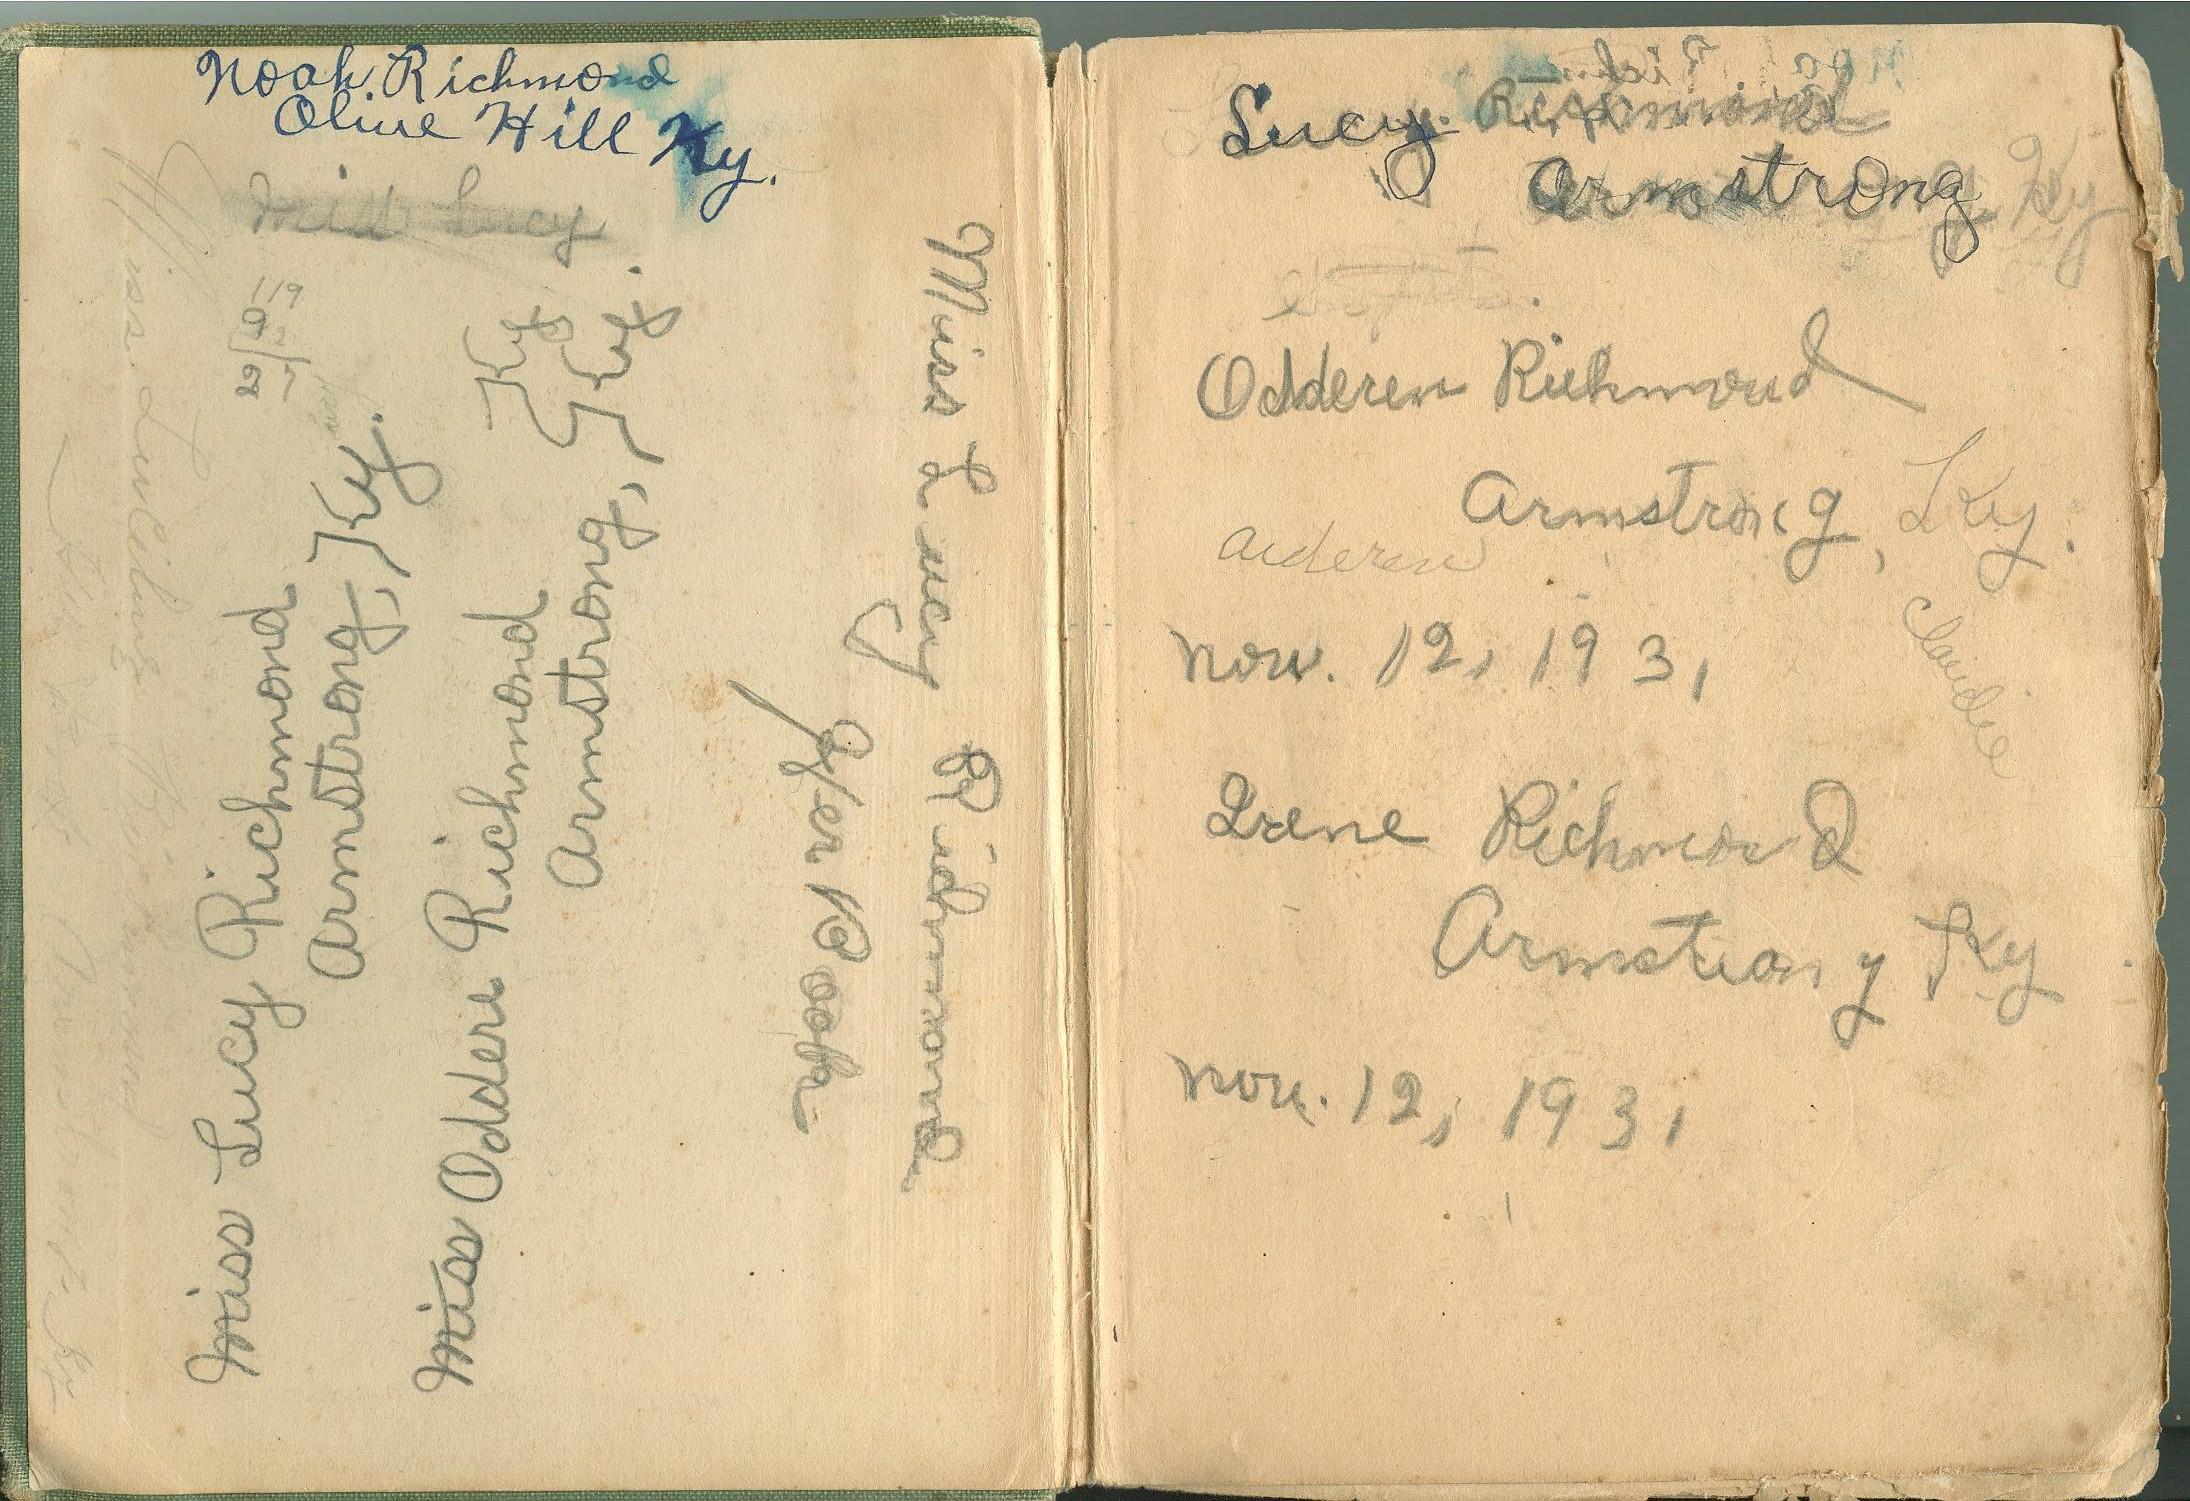 Noah. Richmond
Olive Hill Ky.
Miss Lucy
119
29
Miss Lucy Richmond
Armstrong, Ky.
Miss Oddere Richmond
Armstrong, Ky.
Ky
Miss Lucy Richmond
Her Book
Miss Lucy. Richmond
Armstrong Ky
Lucy. Richmond
Armstrong
Ky
Odderen Richmond
Armstrong, Ky.
Aideren
Claudie
Nov. 12, 1931
Irene Richmond
Armstrong Ky
Nov. 12, 1931